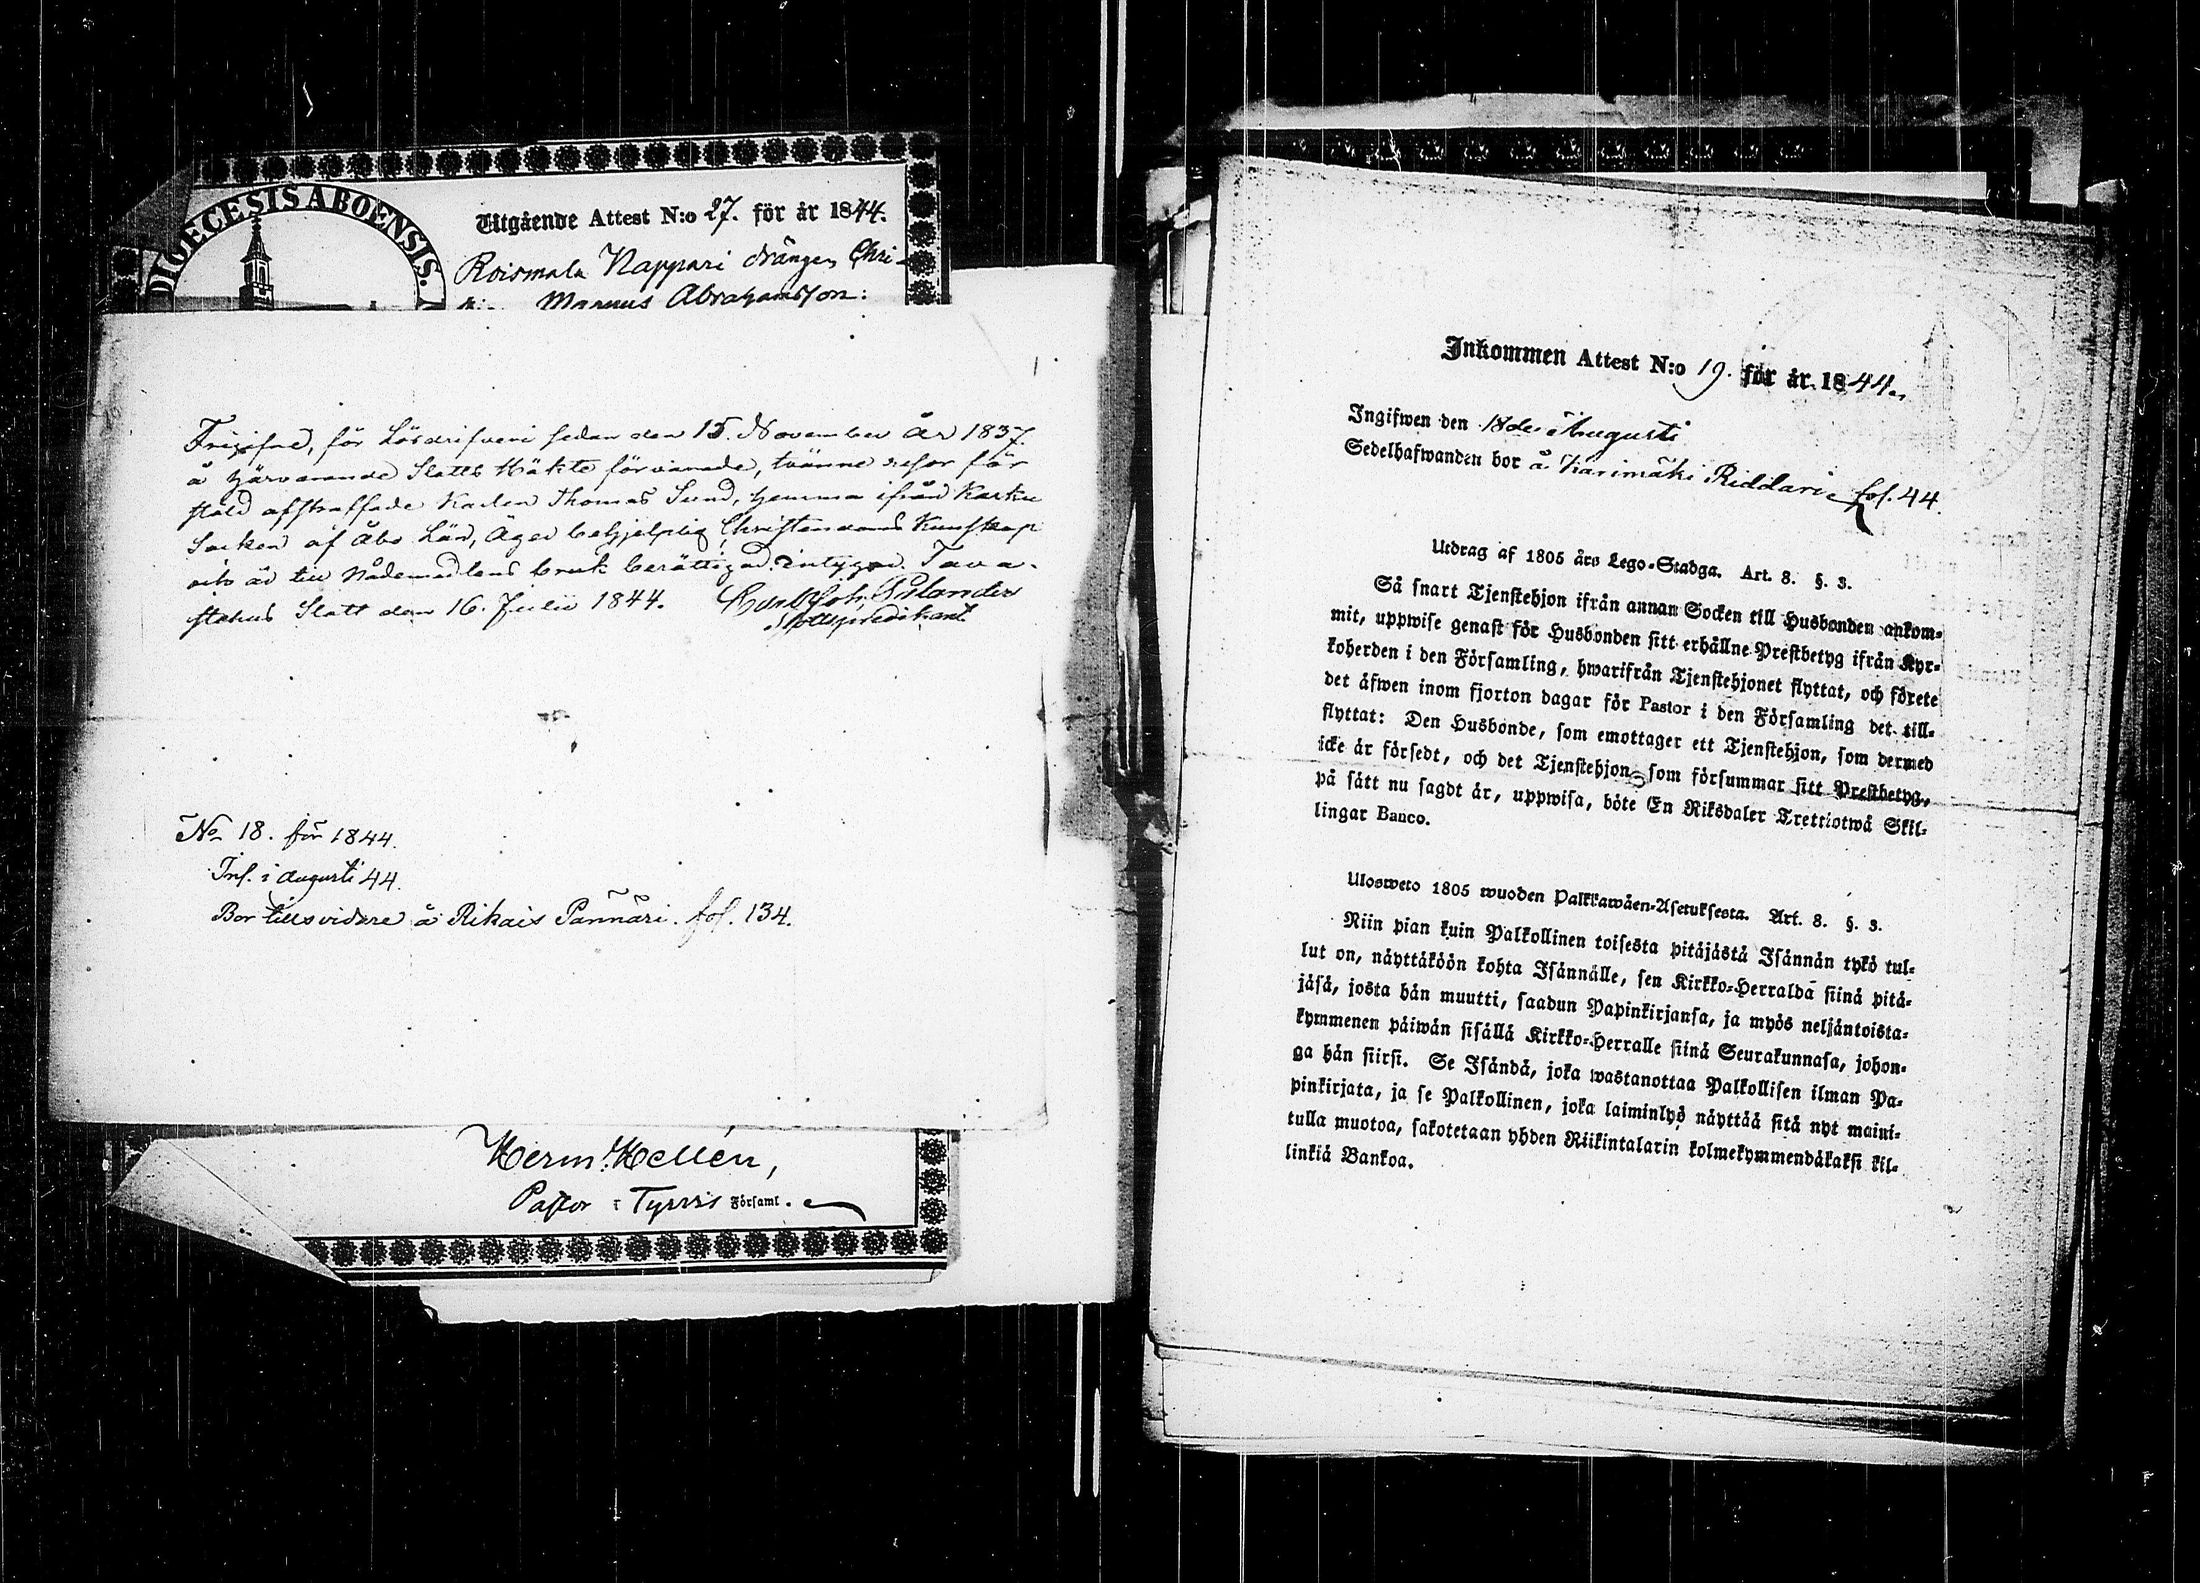 DIOECESIS ABOENSIS.
Utgående Attest N:o 27. för år 1844.
Roismala Nappari drängen Chri-
Marcus Abrahamsson:
Frigifne, för Lösdrifveri sedan den 15. November År 1837.
å härvarande Slatts Häkte förvarade, tvänne resor för
stöld afstraffade Karlen Thomas Lund, hemma ifrån Karku
Socken af Åbo Län, Äger behjelplig Christendoms Kunskap
och är till Nådemedlens bruk berättigad. intygar. Tava-
stehus Slatt den 16. Julii 1844.
Slottspredikant
No 18. för 1844.
Inl. i Augusti 44.
Bor tillsvidare å Rikais Pännäri. fol. 134.
Herm. Hellén,
Pastor i Tyrvis Församl.
Inkommen Attest N:o 19. för år 1844.
Ingifwen den 18de Augusti
Sedelhafwanden bor å Karimäki Riddari fol. 44.
Utdrag af 1805 års Lego-Stadga. Art. 8. §. 3.
Så snart Tjenstehjon ifrån annan Socken till Husbonden ankom-
mit, uppwise genast för Husbonden sitt erhållne Prestbetyg ifrån Kyr-
koherden i den Församling, hwarifrån Tjenstehjonet flyttat, och förete
det äfwen inom fjorton dagar för Pastor i den Församling det till-
flyttat: Den Husbonde, som emottager ett Tjenstehjon, som dermed
icke är försedt, och det Tjenstehjon, som försummar sitt Prestbetyg,
på sätt nu sagdt är, uppwisa, böte En Riksdaler Trettiotwå Skil-
lingar Banco.
Ulosweto 1805 wuoden Palkkawäen-Asetuksesta. Art. 8. §. 3.
Niin pian kuin Palkollinen toisesta pitäjästä Isännän tykö tul-
lut on, näyttäköön kohta Isännälle, sen Kirkko-Herralda siinä pitä-
jäsä, josta hän muutti, saadun Papinkirjansa, ja myös neljäntoista-
kymmenen päiwän sisällä Kirkko-Herralle siinä Seurakunnasa, johon-
ga hän siirsi. Se Isändä, joka wastanottaa Palkollisen ilman Pa-
pinkirjata, ja se Palkollinen, joka laiminlyö näyttää sitä nyt maini-
tulla muotoa, sakotetaan yhden Riikintalarin kolmekymmendäkaksi kil-
linkiä Bankoa.